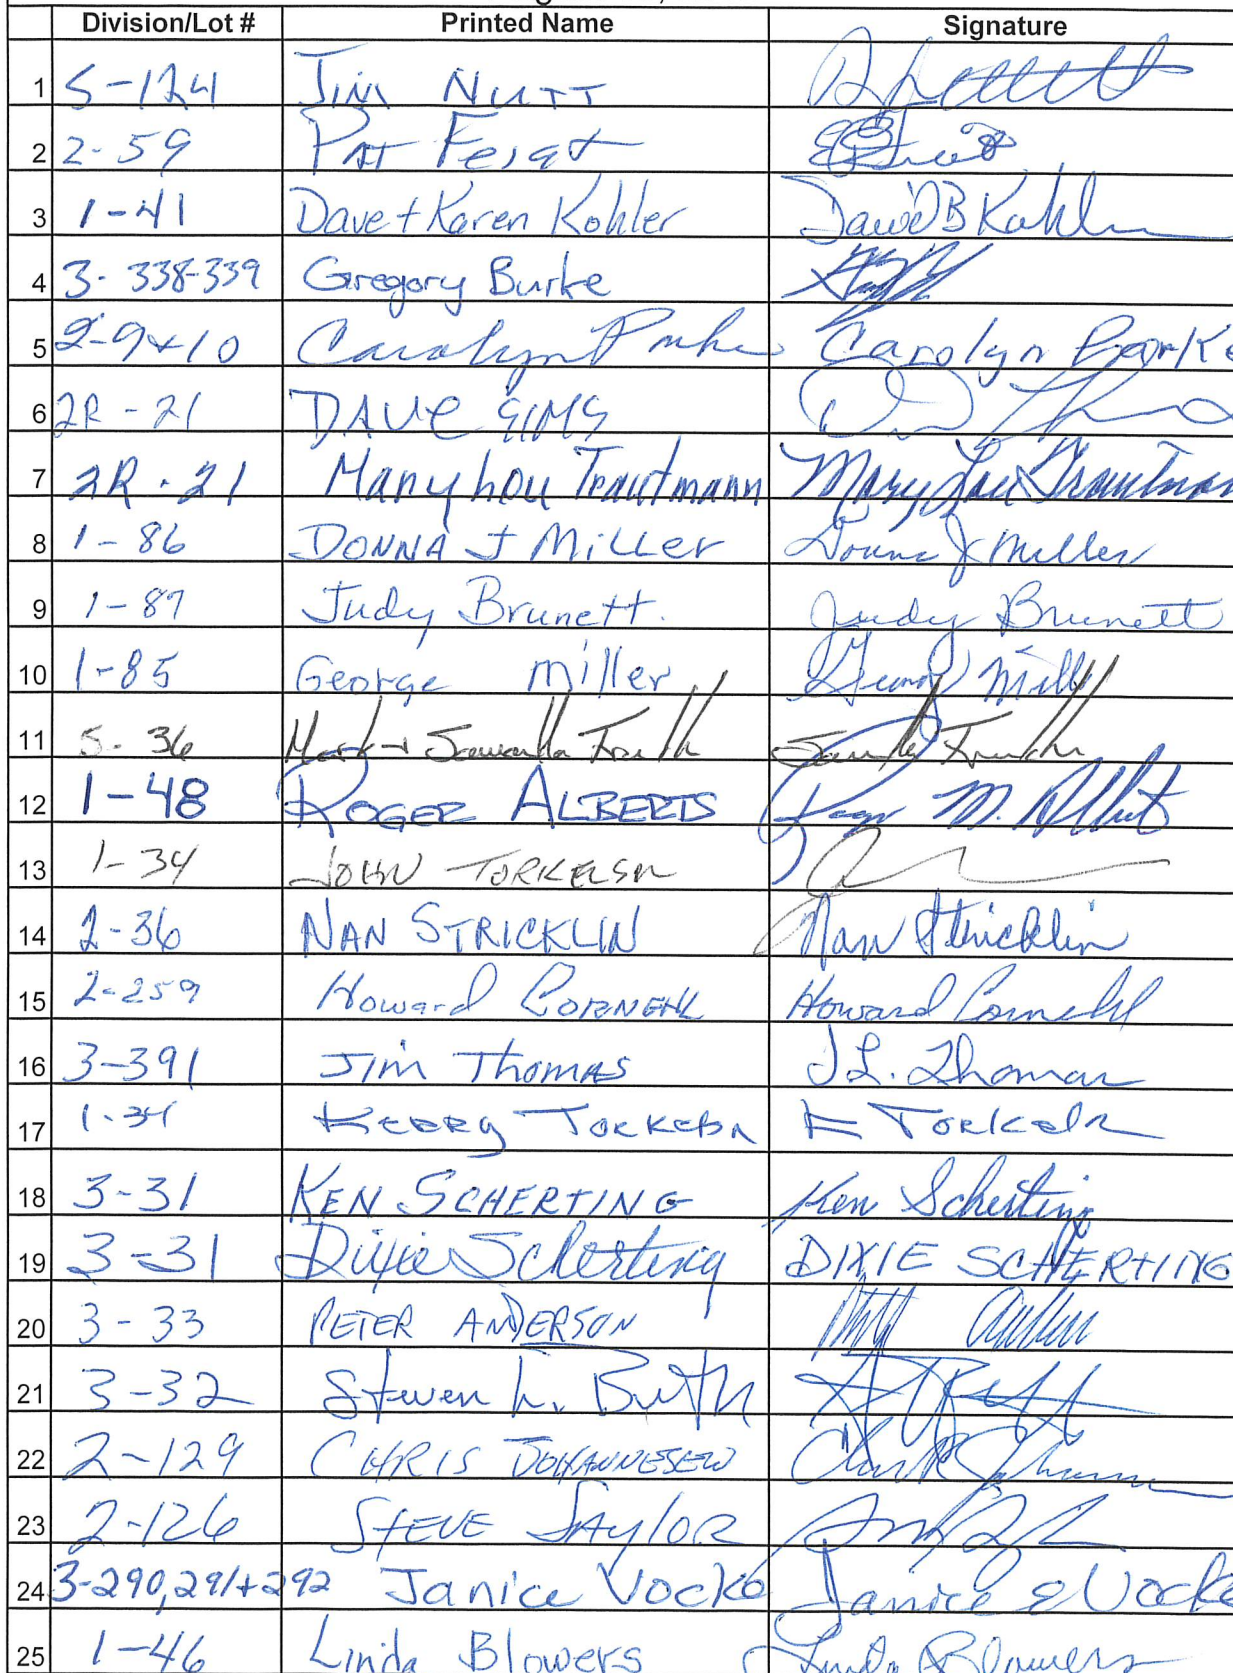 Division/Lot # Printed Name Signature
1 5-124 Jim Nutt
2 2-59 Pat
3 1-41 Dave + Karen Kohler David B Kohler
4 3-338-339 Gregory Burke
5 2-9+10 Carolyn Parker Carolyn Parke
6 2R-21 DAVE SIMS
7 2R-21 Mary Lou Trautmann Mary Lou Trautmann
8 1-86 DONNA J Miller Donna J Miller
9 1-87 Judy Brunett. Judy Brunett
10 1-85 George Miller George Miller
11 5-36 Mark + Samantha
12 1-48 ROGER ALBERTS Roger M. Alberts
13 1-34 JOHN TORKELSON
14 2-36 NAN STRICKLIN Nan Stricklin
15 2-259 Howard CORNEHL Howard Cornehl
16 3-391 Jim Thomas J L. Thomas
17 1-34 Kerry Torkelson K Torkelson
18 3-31 KEN SCHERTING Ken Scherting
19 3-31 Dixie Scherting DIXIE SCHERTING
20 3-33 PETER ANDERSON
21 3-32 Steven L. Buth
22 2-129 CHRIS JOHANNESEN
23 2-126 STEVE SAYLOR
24 3-290,291+292 Janice Vocke Janice E Vocke
25 1-46 Linda Blowers Linda Blowers